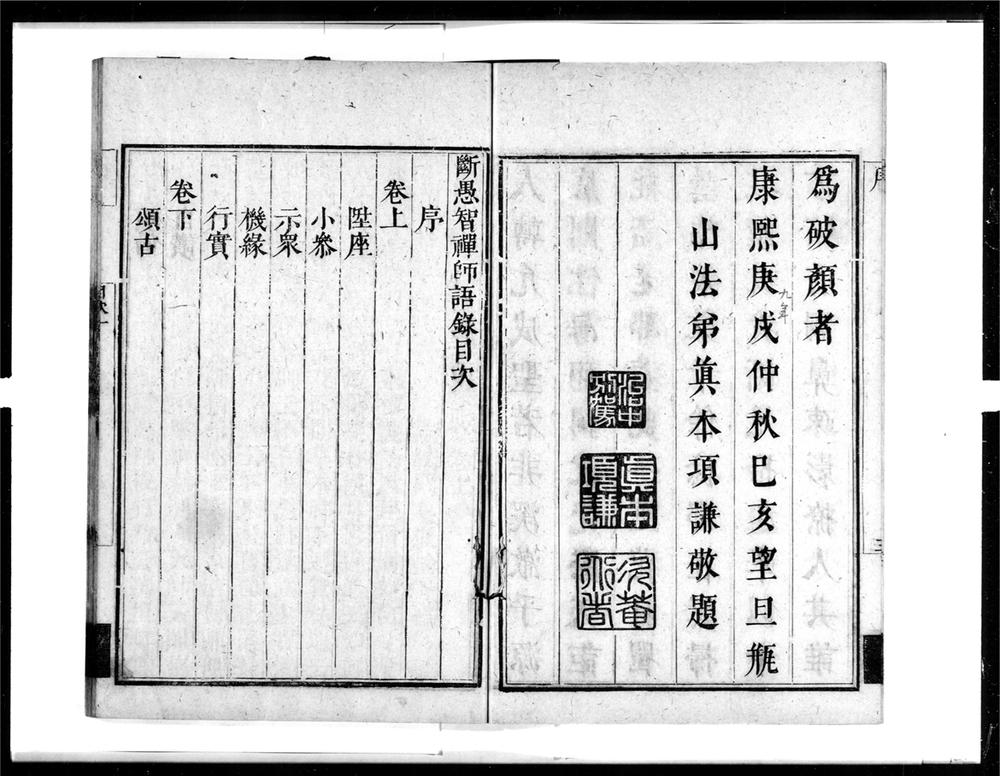 爲破顏者
康熙庚戌仲秋巳亥望旦甁
九年
山法弟眞本項謙敬題
眞本項謙
斷愚智禪師語錄目次
序
卷上
陞座
小叅
示眾
機緣
行實
卷下
頌古